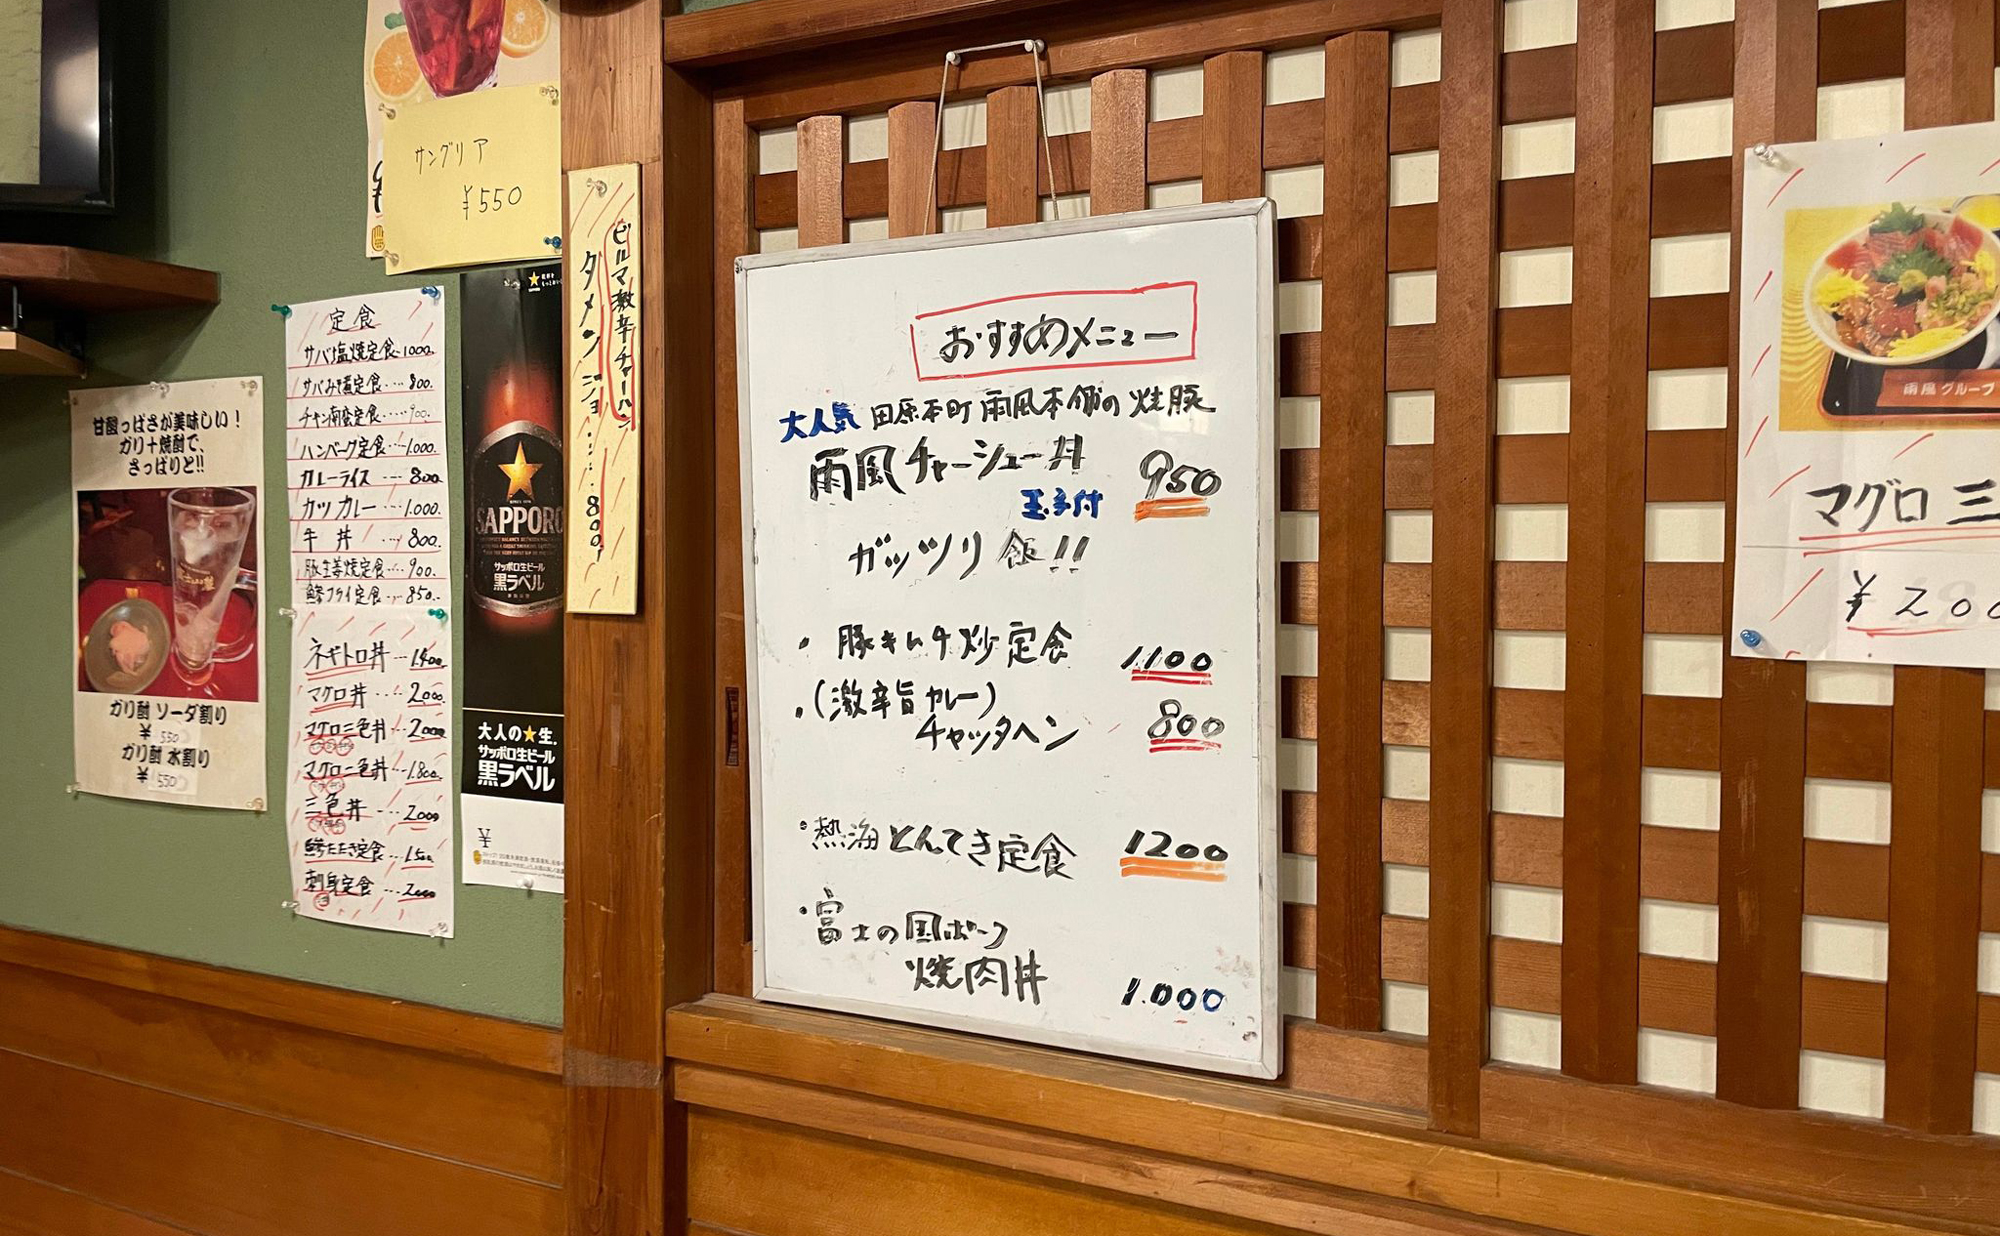 サングリア
¥550
甘酸っぱさが美味しい！
ガリ＋焼酎で、
さっぱりと!!
ガリ酎 ソーダ割り
¥550
ガリ酎 水割り
¥550
定食
サバ塩焼定食‥1000.
サバみそ煮定食‥‥800.
チキン南蛮定食‥‥900.
ハンバーグ定食‥‥1.000
カレーライス‥‥800.
カツカレー‥‥1.000.
牛丼‥‥800.
豚生姜焼定食‥‥900.
鯵フライ定食‥‥850.
ネギトロ丼‥‥1.400.
マグロ丼‥‥2000.
マグロ三色丼‥‥2000
マグロ二色丼‥‥1.800.
三色丼‥‥2000
鯵たたき定食‥‥1.500.
刺身定食‥‥2000
SAPPORO
サッポロ生ビール
黒ラベル
大人の★生.
サッポロ生ビール
黒ラベル
¥
ビルマ激辛チャーハン
タメンジョ‥‥‥800,
おすすめメニュー
大人気 田原本町 雨風本舗の 焼豚
雨風チャーシュー丼 950
玉子付
ガッツリ飯!!
・豚キムチ炒定食 1.100
・(激辛旨カレー)
チャッタヘン 800
・熱海とんてき定食 1200
・富士の国ポーク
焼肉丼 1.000
雨風グループ
マグロ 三
¥200